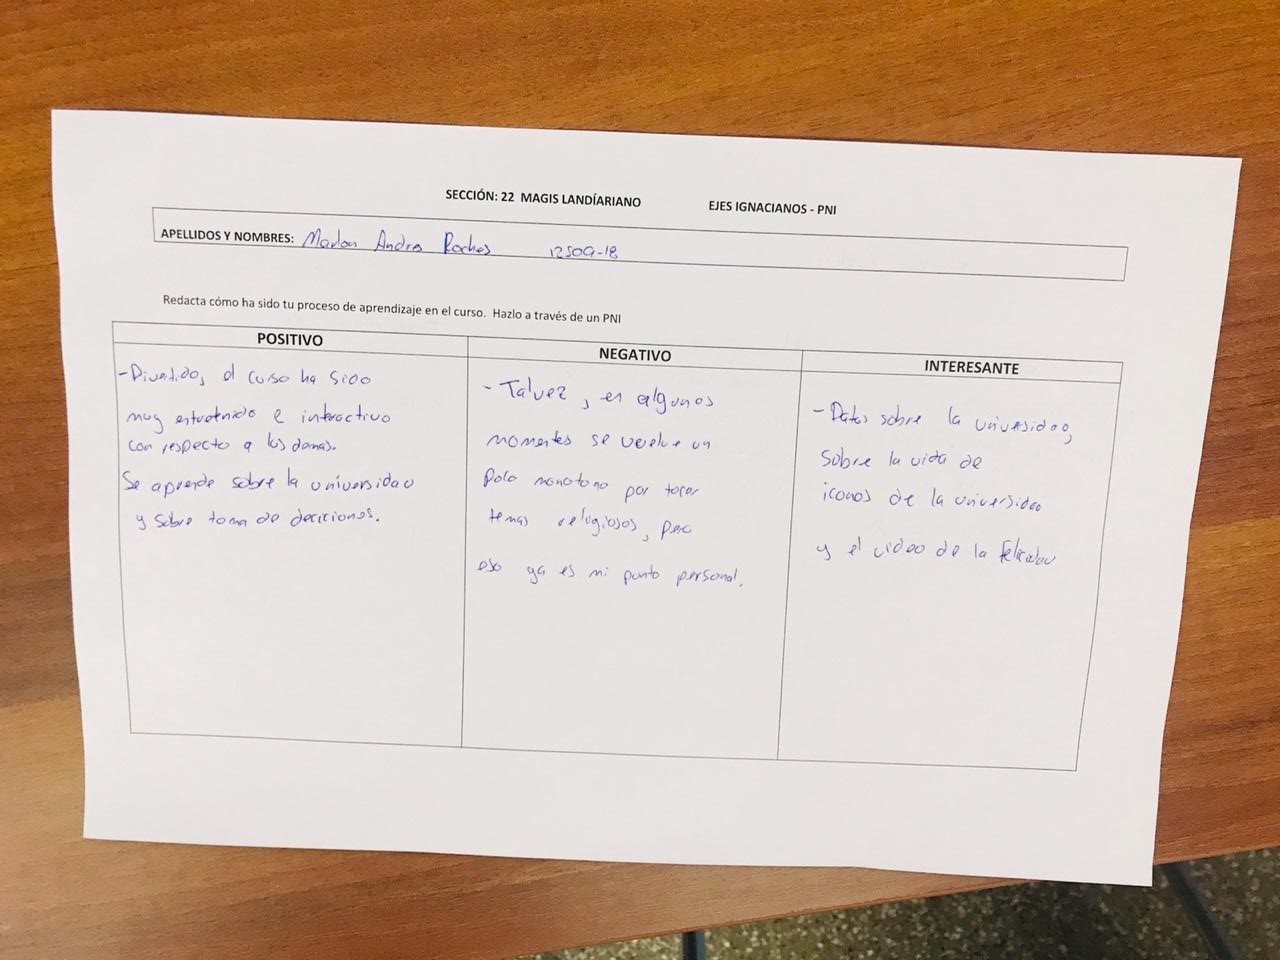 SECCIÓN: 22 MAGIS LANDÍARIANO EJES IGNACIANOS - PNI
APELLIDOS Y NOMBRES: Marlon Andres Roches 12509-18
Redacta cómo ha sido tu proceso de aprendizaje en el curso. Hazlo a través de un PNI
POSITIVO
- Divertido, el curso ha sido
muy entretenido e interactivo
con respecto a los demas.
Se aprende sobre la universidad
y sobre toma de deciciones.
NEGATIVO
- Talvez, en algunos
momentos se vuelve un
poco monotono por tocar
temas religiosos, pero
eso ya es mi punto personal.
INTERESANTE
- Datos sobre la universidad,
sobre la vida de
iconos de la universidad
y el video de la felicidad